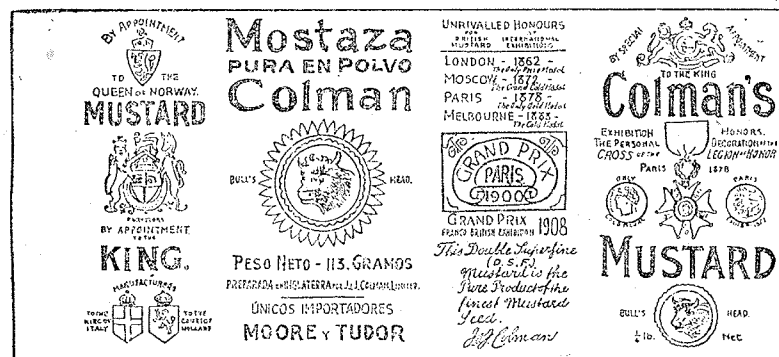 BY APPOINTMENT
TO THE
QUEEN OF NORWAY.
MUSTARD
BY APPOINTMENT
TO THE
KING.
MANUFACTURERS
TO THE KING OF ITALY
TO THE COURT OF HOLLAND
Mostaza
PURA EN POLVO
Colman
BULL'S HEAD.
PESO NETO - 113. GRAMOS
PREPARADA EN INGLATERRA POR J. & J. COLMAN LIMITED.
ÚNICOS IMPORTADORES
MOORE Y TUDOR
UNRIVALLED HONOURS
FOR
BRITISH INTERNATIONAL
MUSTARD EXHIBITIONS
LONDON - 1862 -
The Only Prize Medal
MOSCOW - 1872 -
The Grand Gold Medal
PARIS - 1878 -
The Only Gold Medal
MELBOURNE - 1888 -
The Gold Medal
GRAND PRIX
PARIS
1900
GRAND PRIX
FRANCO BRITISH EXHIBITION 1908
This Double Superfine
(D.S.F.)
Mustard is the
Pure Product of the
finest Mustard
Seed.
J&J Colman
BY SPECIAL APPOINTMENT
TO THE KING
Colman's
EXHIBITION HONORS.
THE PERSONAL DECORATION OF THE
CROSS OF THE LEGION OF HONOR
PARIS 1878
ONLY PARIS
MUSTARD
BULL'S HEAD.
¼ lb. Net.